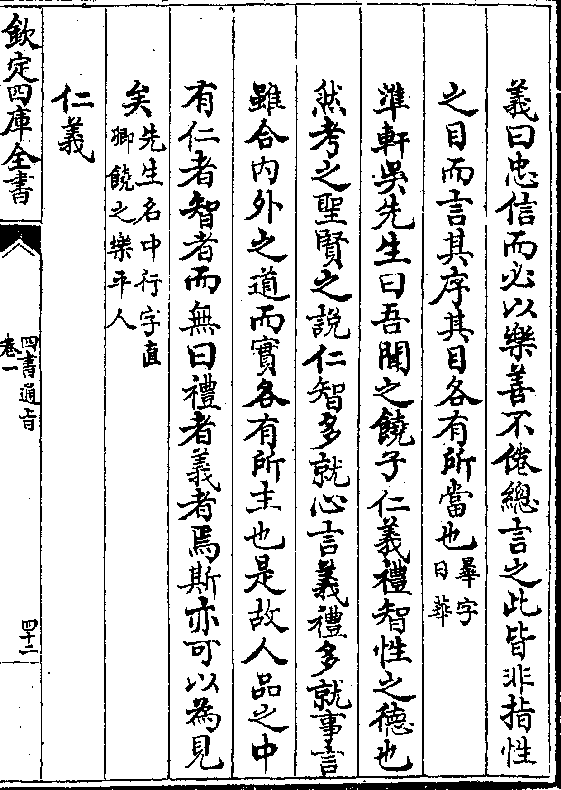 義曰忠信而必以樂善不倦總言之此皆非指性
之目而言其序其目各有所當也畢字
日華
準軒吳先生曰吾聞之饒子仁義禮智性之德也
然考之聖賢之說仁智多就心言義禮多就事言
雖合內外之道而實各有所主也是故人品之中
有仁者智者而無曰禮者義者焉斯亦可以為見
矣先生名中行字直
卿饒之樂平人
仁義
欽定四庫全書
四書通旨
卷一
四十二